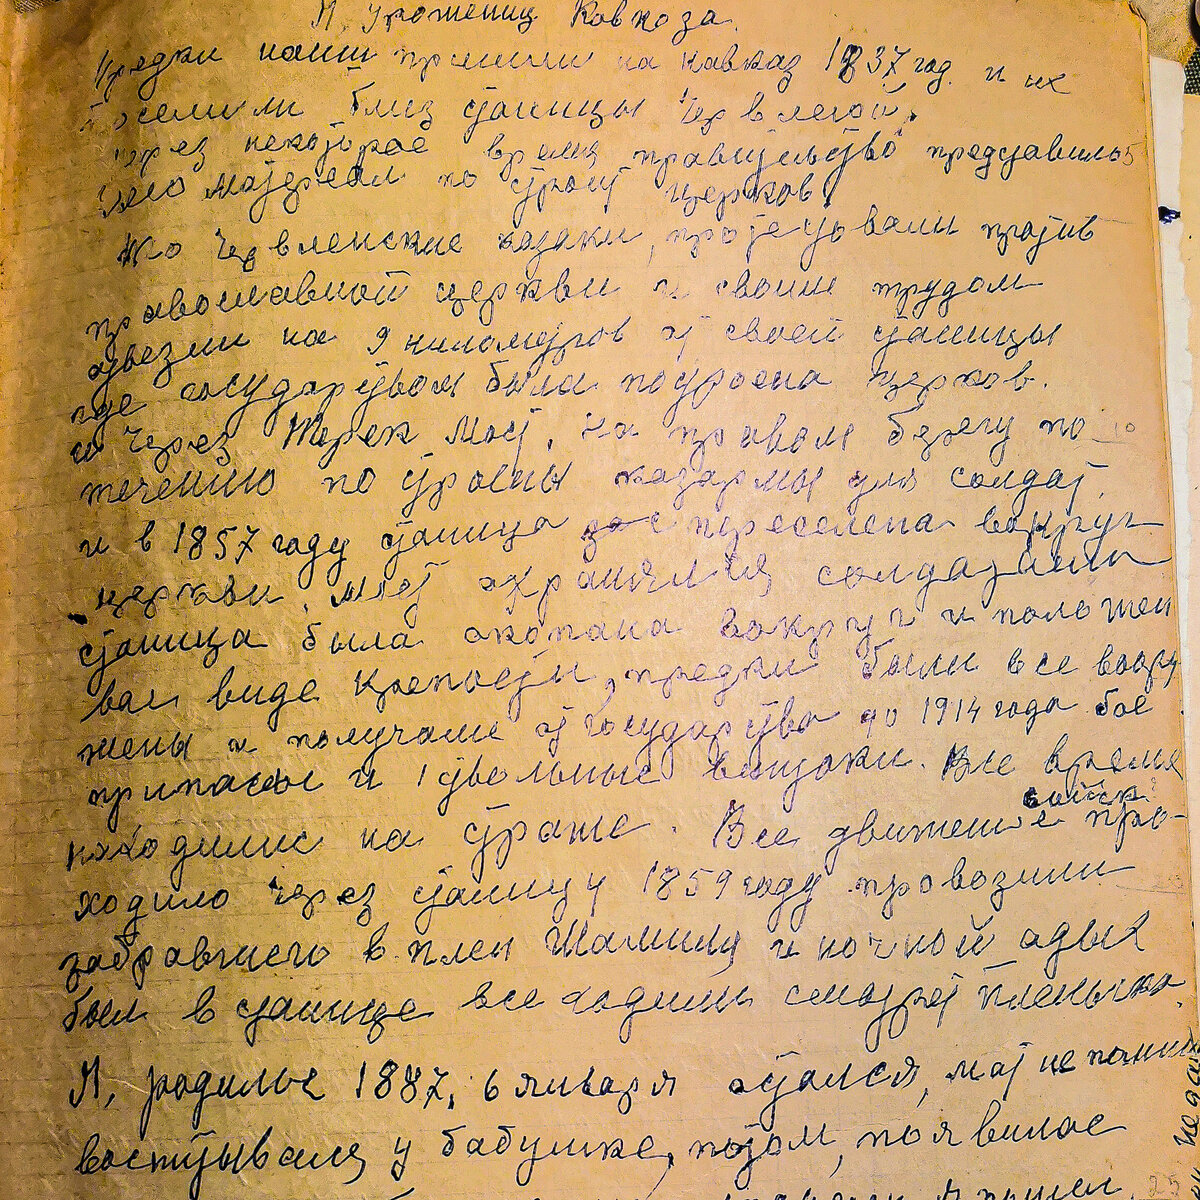 Я, уроженец Кавказа.
Предки наши пришли на кавказ 1837 год. и их
поселили близ станицы Червленой,
через некоторае время правительство представило 5
мотереал по строит церков,
Но Червленские казаки, протестовали против
православной церкви и своим трудом
отвезли на 9 километров от своей станицы
где государством была построена церков.
и через Терек мост, на правом берегу по 10
течению построены казармы для солдат,
и в 1857 году станица переселена вокруг
церкви, мост охранялся солдатами
станица была окопана вокруг и положен
вал виде крепости, предки были все воору
жены и получали от государства до 1914 года бое
припасы и ствольные винтовки. Все время
войск?
находилис на страже. Все движение про-
ходило через станицу 1859 году провозили
забравшего в плен Шамиля и ночной отдых
был в станице все ходили смотрет пленника.
Я, родилс 1887, 6 января остался, мат не помню
воспитывался у бабушке, потом, появилас
25